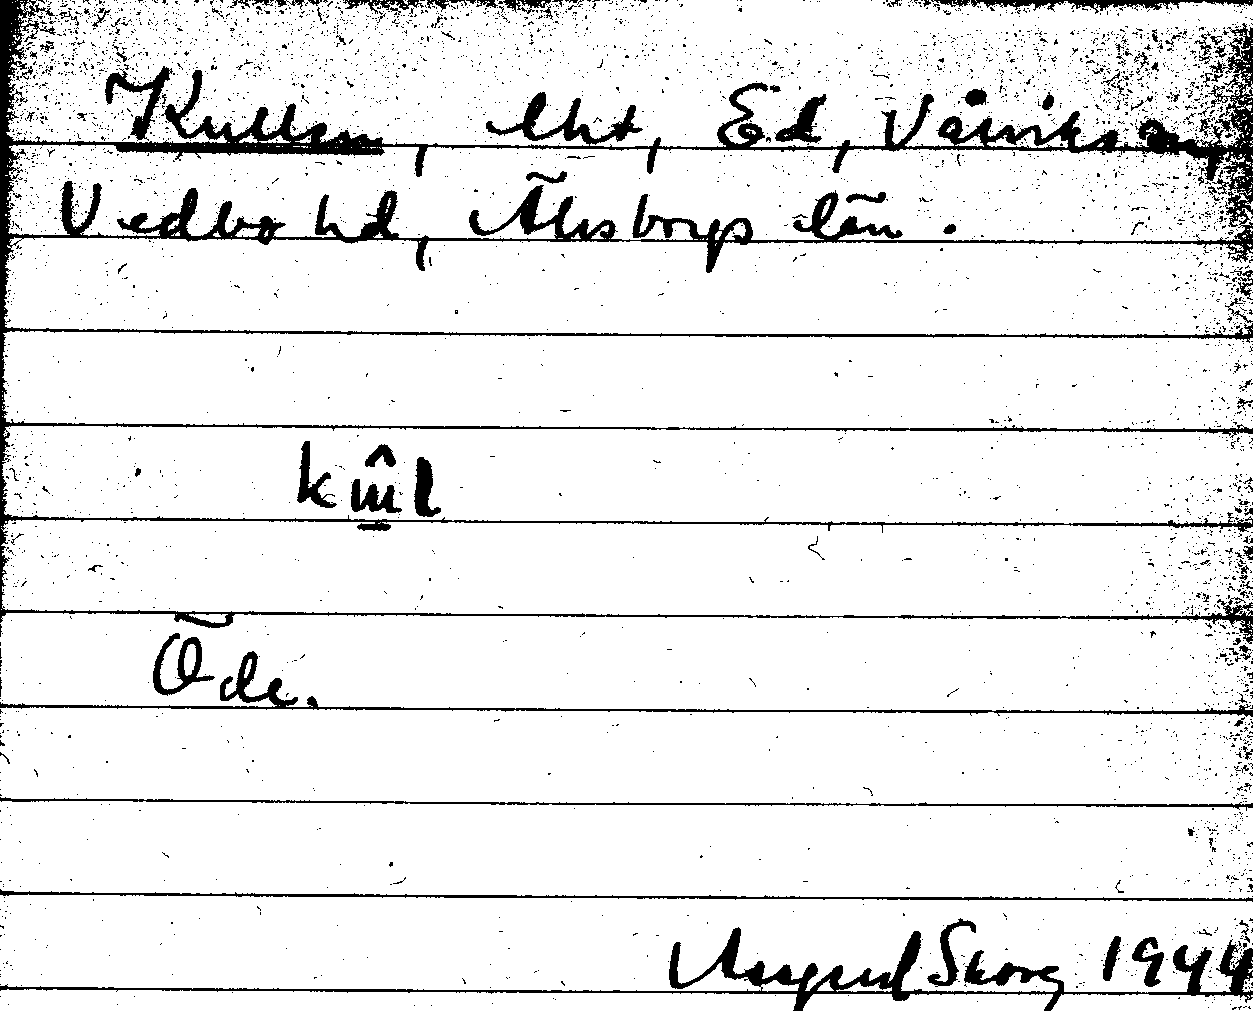 Kullen, lht, Ed, Vårviks sn,
Vedbo hd, Älvsborgs län.
Öde.
August Skog 1944